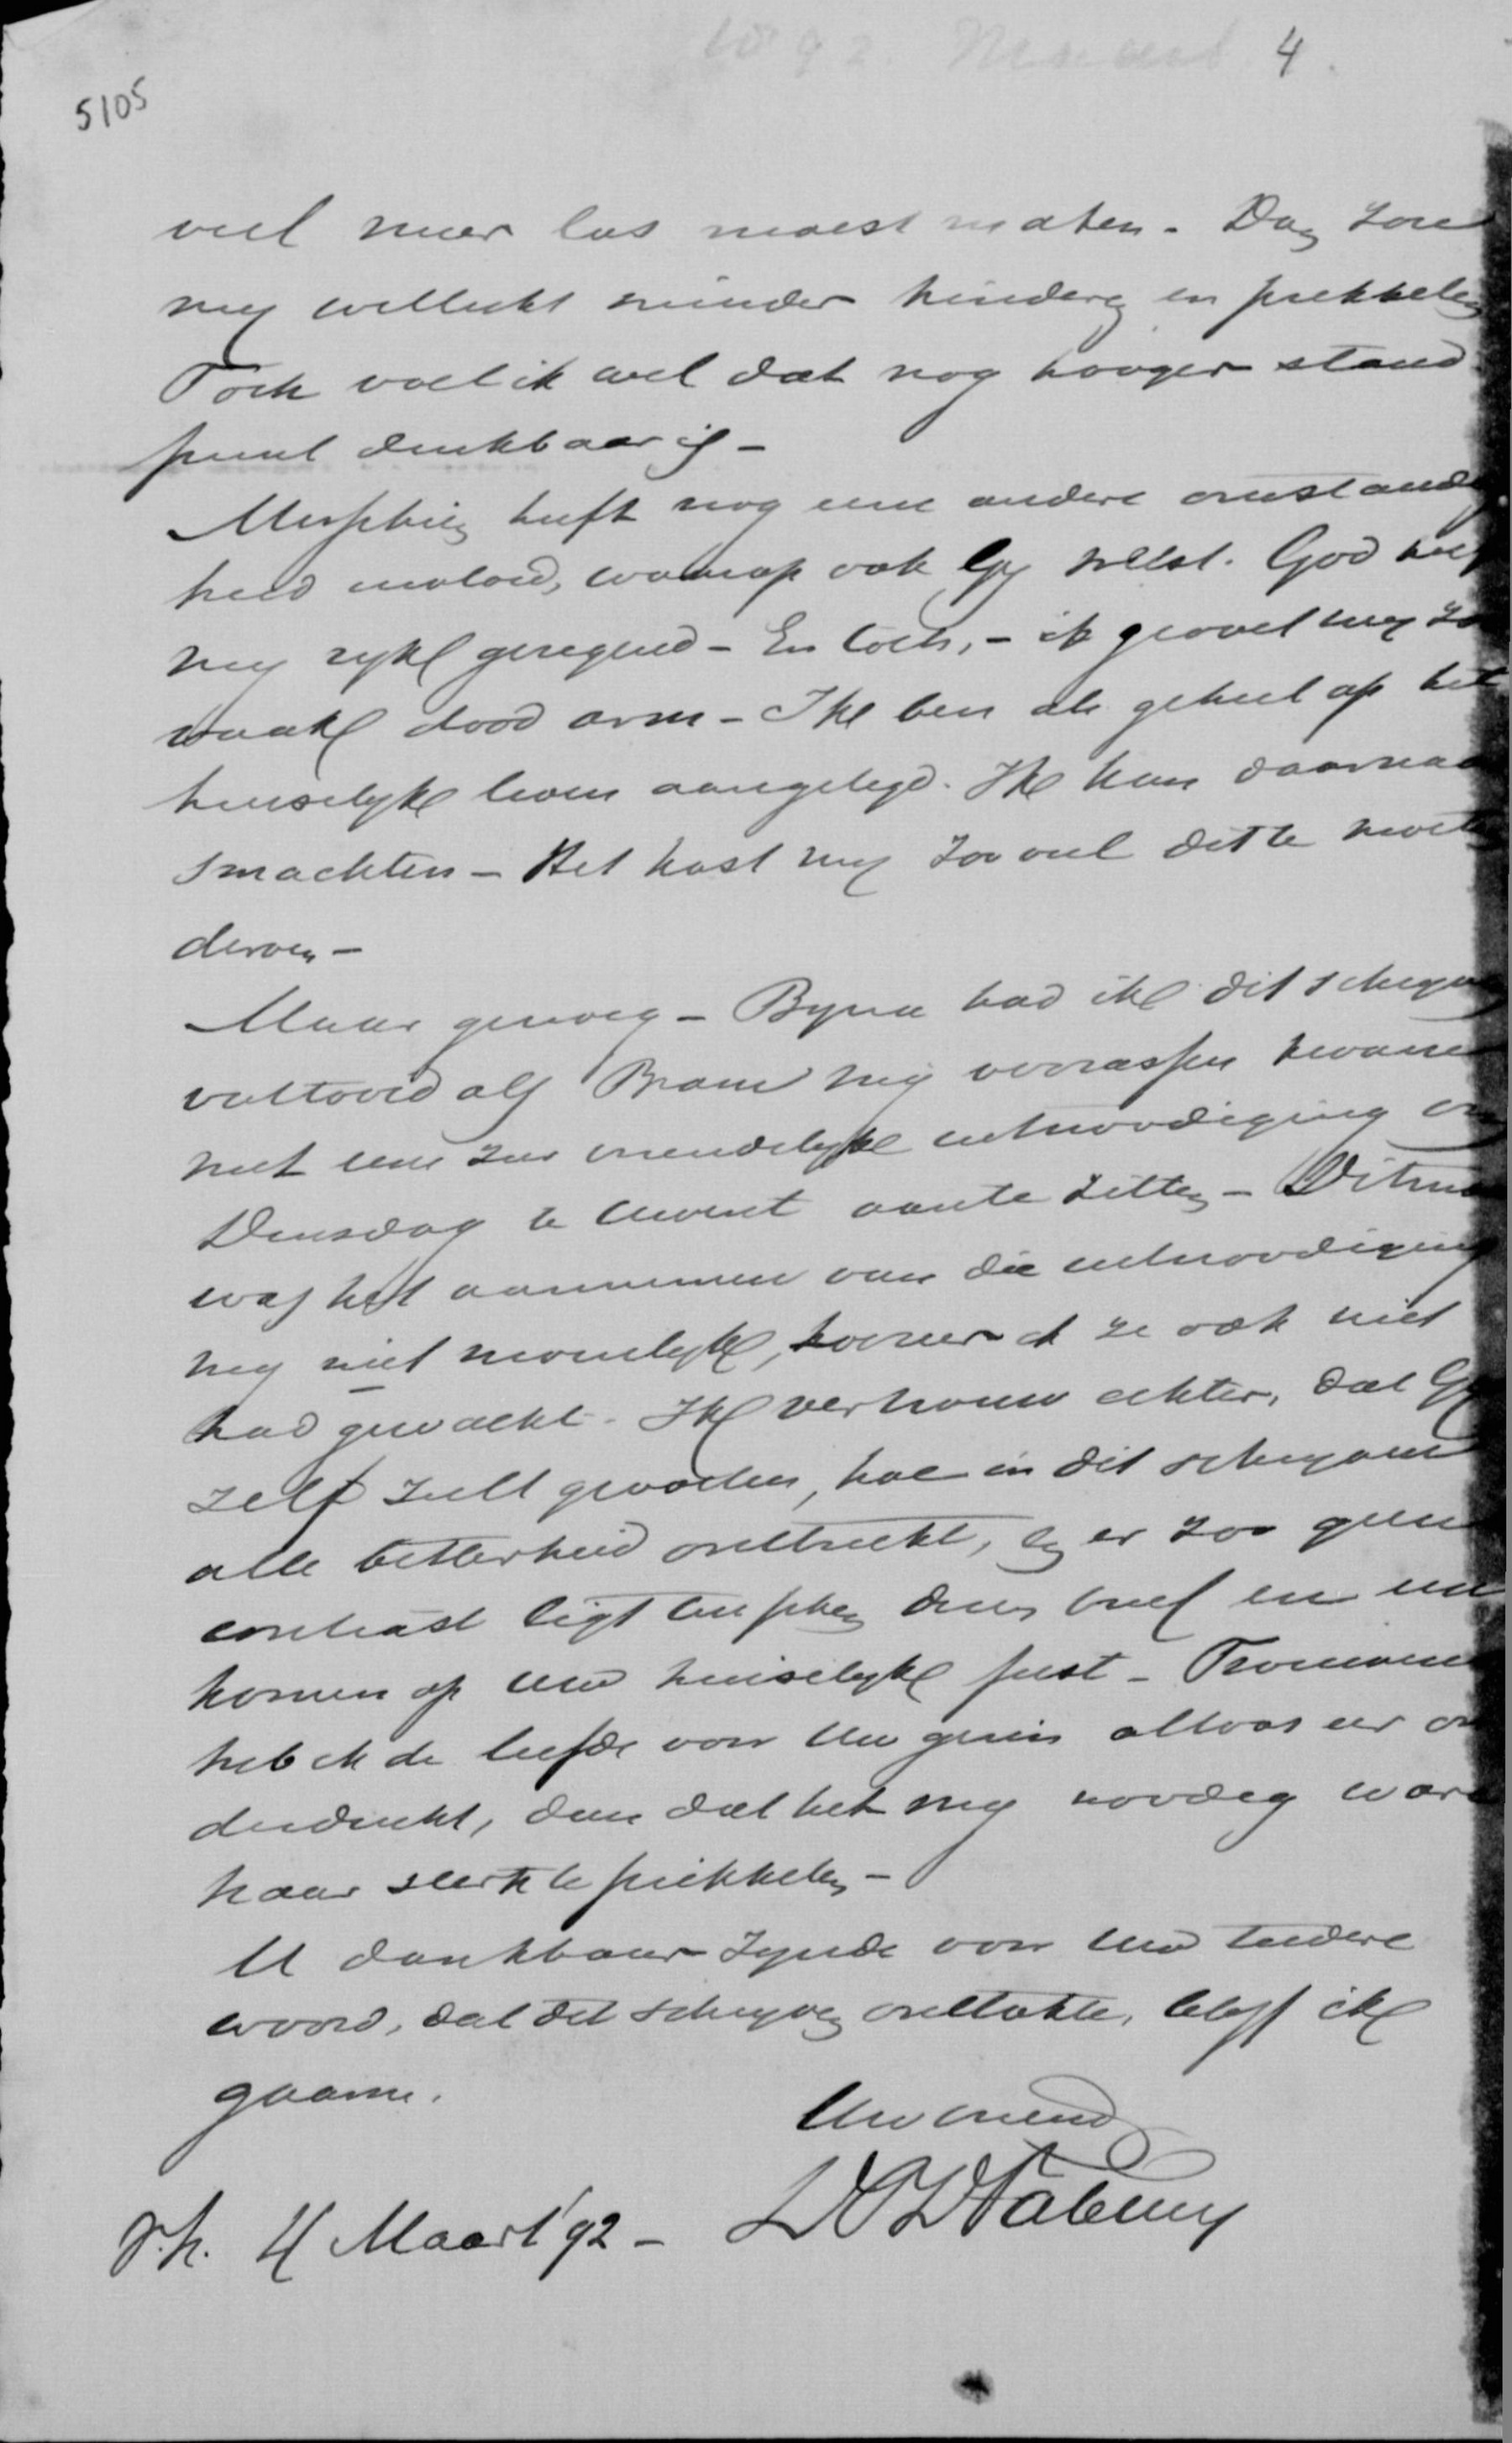 1892 Maart 4.
5105
veel meer los moest maken. Dan zou
mij wellicht minder hinderen en prikkelen
Toch voel ik wel dat nog hooger stand
punt denkbaar is -
Misschien heeft nog eene andere omstandig
heid invloed, waarop ook Gij wellst. God heeft
mij rijk gezegend - En toch, - ik gevoel mij zo
vaak dood arm - Ik ben als geheel op het
huiselijk leven aangelegd. Ik kan daarnaar
smachten - Het kost mij zooveel dit te moeten
derven -
Maar genoeg - Bijna had ik dit schrijven
voltooid als Bram mij verrassen kwam
met eene zeer vriendelijke uitnoodiging om
Dinsdag te Uwent aan te zitten - Ditmaal
was het aannemen van die uitnoodiging
mij niet moeielijk, hoezeer ik ze ook niet
had gewacht. Ik vertrouw echter, dat Gij
zelf zult gevoelen, hoe in dit schrijven
alle bitterheid ontbreekt, en er zoo geen
contrast ligt tusschen dezen brief en een
komen op Uw huiselijk feest - Trouwens
heb ik de liefde voor Uw gezin altoos eer on
derdrukt, dan dat het mij noodig ware
haar sterk te prikkelen -
U dankbaar zijnde voor Uw teedere
woord, dat dit schrijven ontlokte, blijf ik
gaarne.
Uw vriend
DPDFabius
4 Maart '92 -